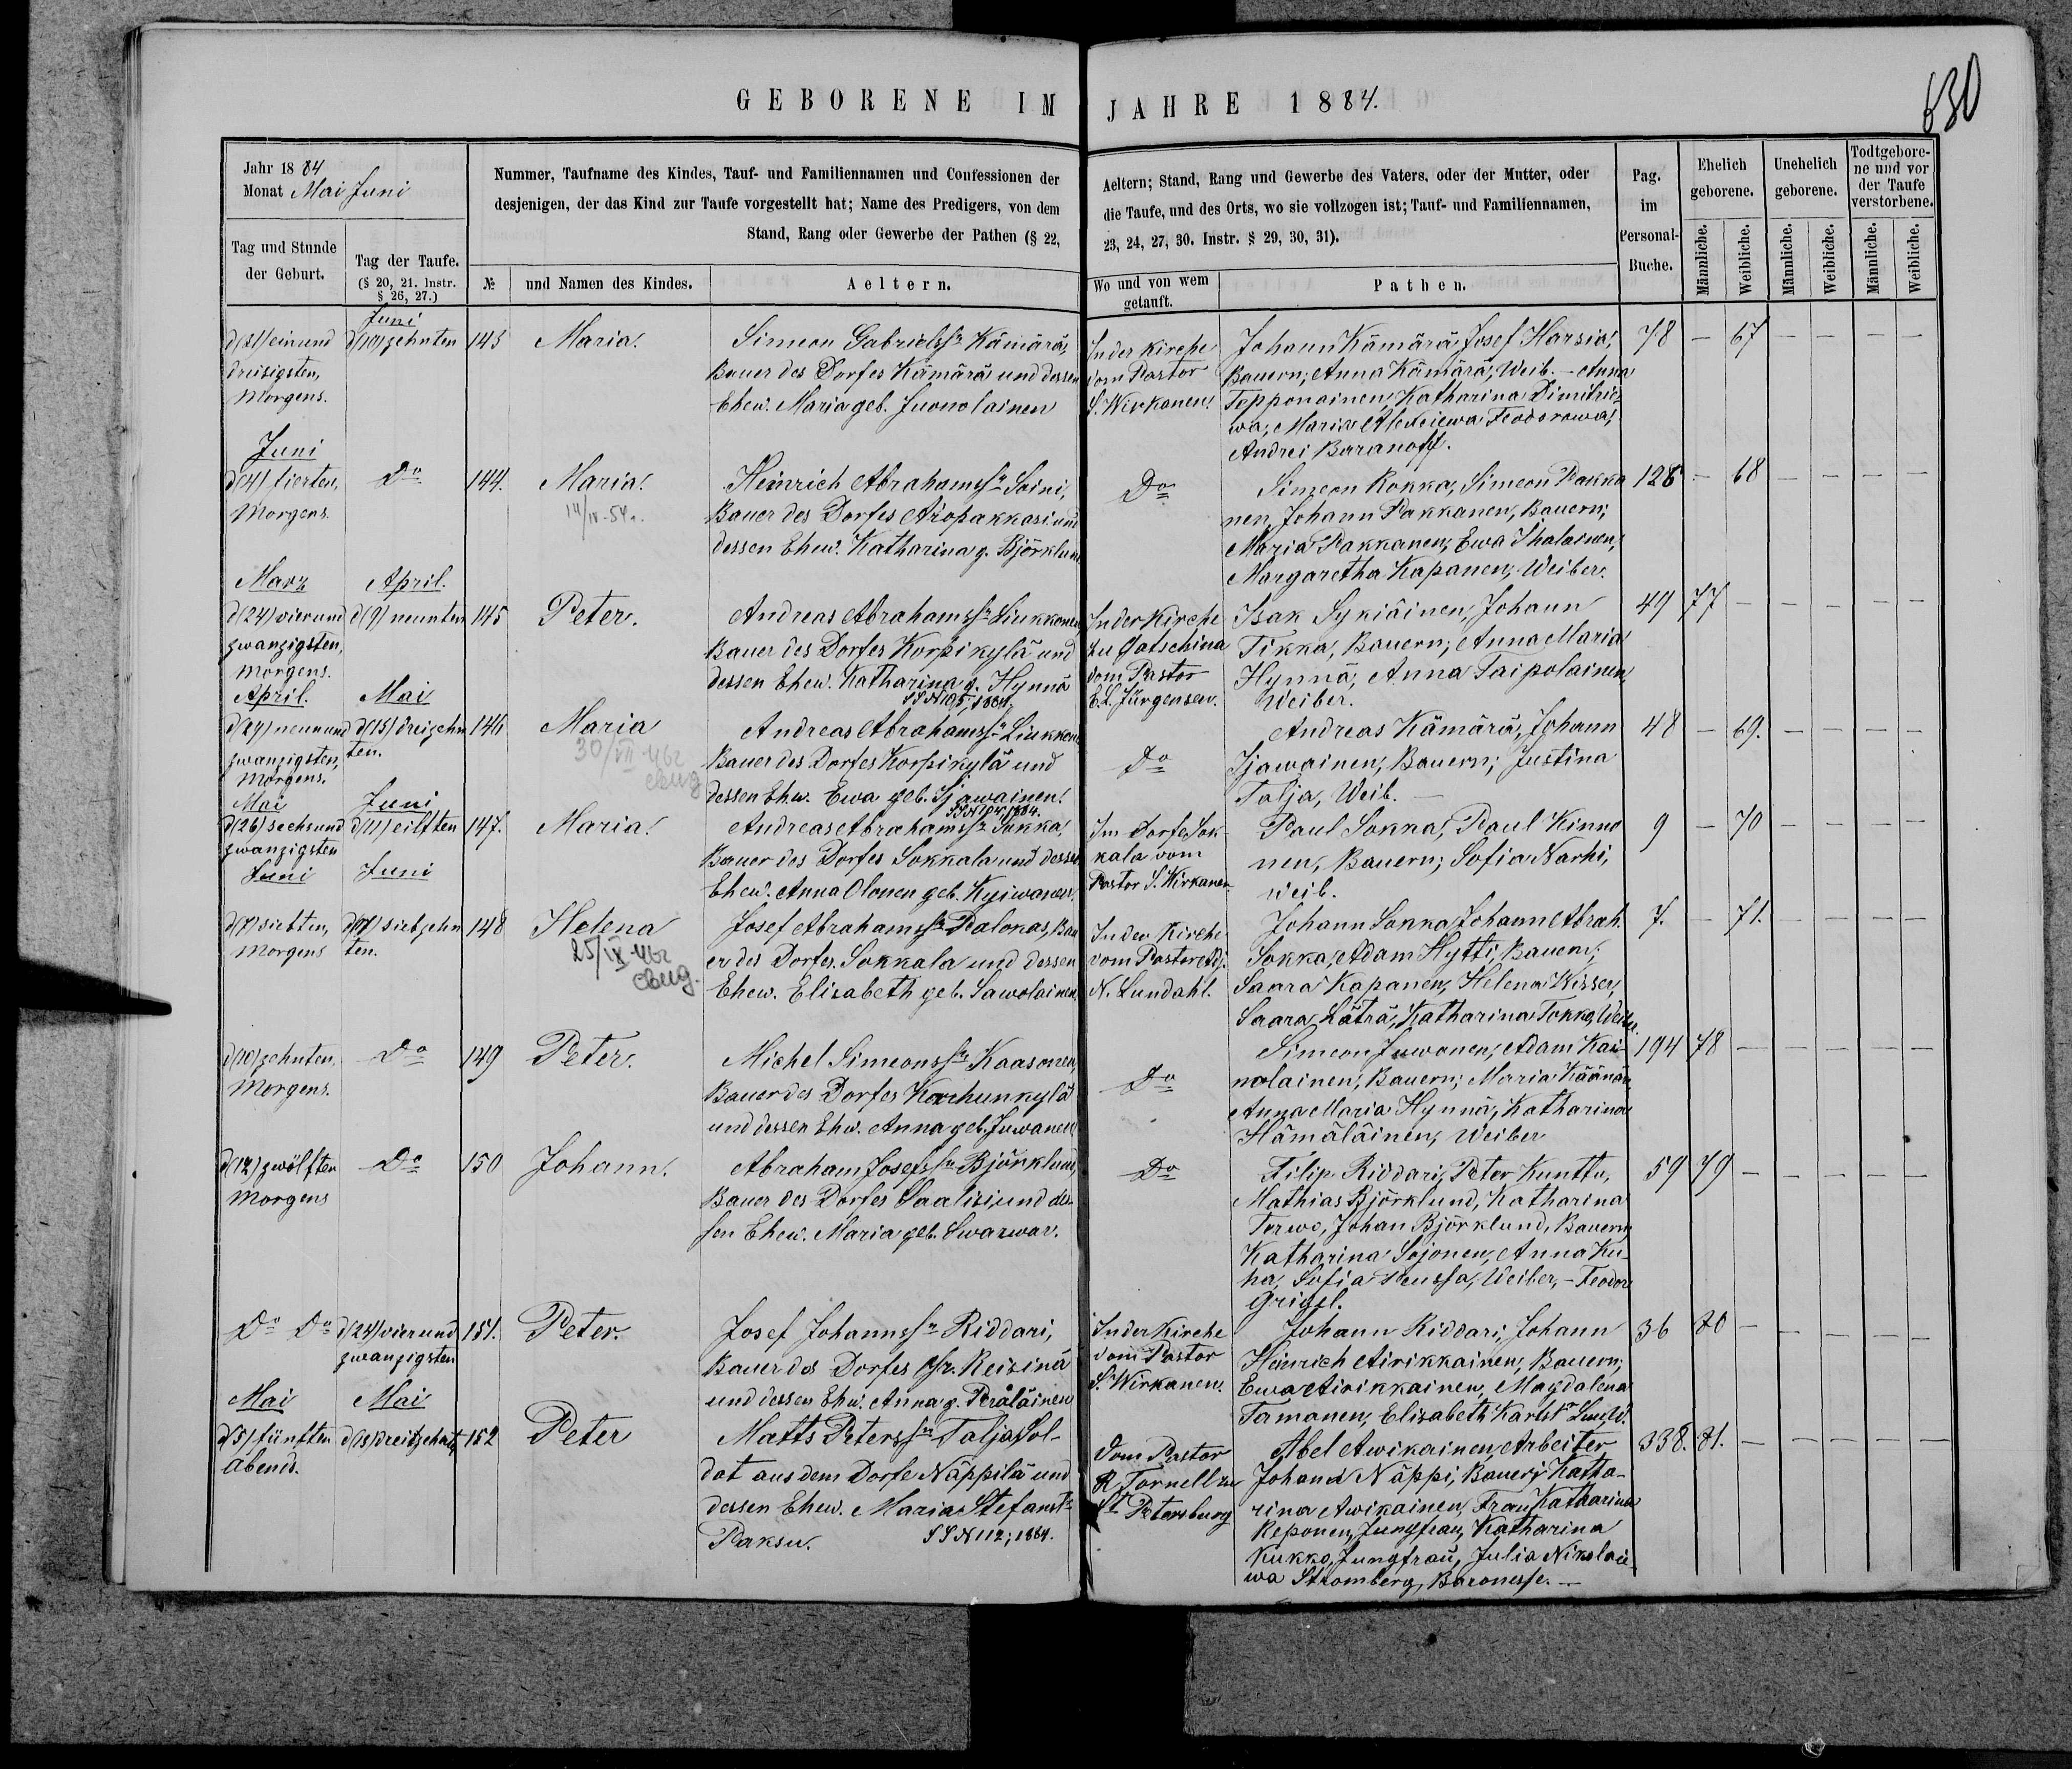 GEBORENE IM JAHRE 1884.
630
Jahr 1884
Monat Mai Juni
Tag und Stunde
der Geburt.
Tag der Taufe.
(§ 20, 21. Instr.
§ 26, 27.)
Nummer, Taufname des Kindes, Tauf- und Familiennamen und Confessionen der
desjenigen, der das Kind zur Taufe vorgestellt hat; Name des Predigers, von dem
Stand, Rang oder Gewerbe der Pathen (§ 22,
№
und Namen des Kindes.
Aeltern.
Aeltern; Stand, Rang und Gewerbe des Vaters, oder der Mutter, oder
die Taufe, und des Orts, wo sie vollzogen ist; Tauf- und Familiennamen,
23, 24, 27, 30. Instr. § 29, 30, 31).
Wo und von wem
getauft.
Pathen.
Pag.
im
Personal-
Buche.
Ehelich
geborene.
Unehelich
geborene.
Todtgebore-
ne und vor
der Taufe
verstorbene.
Männliche.
Weibliche.
Männliche.
Weibliche.
Männliche.
Weibliche.
Juni
d(31) einund
dreisigsten,
Morgens.
d(10) zehnten
143
Maria.
Simeon Gabrielssn Kämärä,
Bauer des Dorfes Kämärä und dessen
Ehew. Maria geb. Juonolainen
In der Kirche
vom Pastor
S. Wirkanen.
Johann Kämärä, Josef Harsia,
Bauern; Anna Kämärä, Weib. - Anna
Tepponainen, Katharina Dimitrie
wa, Maria Alexiewa Feodorowa,
Andrei Baranoff.
78 — 67 — — — —
Juni
d(4) fierten,
Morgens.
Do
144.
Maria.
14/IV-54.
Heinrich Abrahamssn Soini,
Bauer des Dorfes Aropakkasi und
dessen Ehew. Katharina g. Björklund
Do
Simeon Kokka, Simeon Pakka
nen, Johann Pakkanen, Bauern;
Maria Pakkanen, Ewa Ihalainen,
Margaretha Kapanen, Weiber.
128 — 68 — — — —
Marz
April.
d(24) vierund
zwanzigsten,
Morgens.
d(9) neunten
145
Peter.
Andreas Abrahamssn Liukkonen
Bauer des Dorfes Korpikylä und
dessen Ehew. Katharina g. Hynnä
SSN 105, 1884.
In der Kirche
zu Gatschina
vom Pastor
E. L. Jürgensen.
Isak Sykiäinen, Johann
Tikka, Bauern; Anna Maria
Hynnä, Anna Taipolainen,
Weiber.
49 77 — — — — —
April.
Mai
d(29) neunund
zwanzigsten,
Morgens.
d(13) dreizehn
ten.
146
Maria
30/VII-46г
свид
Andreas Abrahamssn Liukkonen
Bauer des Dorfes Korpikylä und
dessen Ehew. Ewa geb. Sjawainen.
SSN 104, 1884.
Do
Andreas Kämärä, Johann
Sjawainen, Bauern; Justina
Talja, Weib. —
48 — 69. — — — —
Mai
Juni
d(26) sechsund
zwanzigsten
d(11) eilften
147.
Maria.
Andreas Abrahamssn Sokka,
Bauer des Dorfes Sokkala und dessen
Ehew. Anna Olonen geb. Kyiwanen.
Im Dorfe Sok-
kala vom
Pastor S. Wirkanen
Paul Sokka, Paul Kinno
nen, Bauern; Sofia Narhi,
Weib.
9 — 70 — — — —
Juni
Juni
d(7) siebten,
Morgens
d(17) siebzehn
ten.
148
Helena
25/IX-46г
свид.
Josef Abrahamssn Palokas, Bau
er des Dorfes Sokkala und dessen
Ehew. Elisabeth geb. Sawolainen.
In der Kirche
vom Pastor Adj.
N. Lundahl.
Johann Sokka, Johann Abrah.
Sokka, Adam Hytti, Bauern;
Saara Kapanen, Helena Wisser,
Saara Läträ, Katharina Tokko,
7. — 71. — — — —
d(10) zehnten,
Morgens.
Do
149
Peter.
Michel Simeonssn Kaasonen,
Bauer des Dorfes Korhunkylä
und dessen Ehw. Anna geb. Juwanen
Do
Simeon Juwonen, Adam Kai-
nolainen, Bauern; Maria Käänän
Anna Maria Hynnä, Katharina
Hämäläinen, Weiber
194 78 — — — — —
d(12) zwölften
Morgens
Do
150
Johann.
Abraham Josefssn Björklund,
Bauer des Dorfes Saalisi, und des-
sen Ehew. Maria geb. Swarwar.
Do
Filip Riddari, Peter Kunttu,
Mathias Björklund, Katharina
Terwo, Johan Björklund, Bauern,
Katharina Sojonen, Anna Ku-
ha, Sofia Reussa, Weiber, - Feodor
Grigel.
59 79 — — — — —
Do Do
d(24) vierund
zwanzigsten
151.
Peter.
Josef Johannssn Riddari,
Bauer des Dorfes Reisinä
und dessen Ehw. Anna g. Peräläinen
In der Kirche
vom Pastor
S. Wirkanen.
Johann Riddari, Johann
Heinrich Airikkainen, Bauern;
Ewa Airikkainen, Magdalena
Tamanen, Elisabeth
36 80 — — — — —
Mai
Mai
d(5) fünften
Abends.
d(13) dreitzehnten
152
Peter
Matts Peterssn Talja Sol-
dat aus dem Dorfe Näppilä und
dessen Ehew. Maria Stefanstr
Paksu.
SSN 112; 1884.
Vom Pastor
R. Tornell zu
St. Petersburg
Abel Awikainen, Arbeiter
Johan Näppi, Bauer; Katha-
rina Awikainen, Frau, Katharina
Reponen, Jungfrau, Katharina
Kukko, Jungfrau, Julia Nikolaie
wa Stromberg, Baronesse. —
338. 81. — — — — —